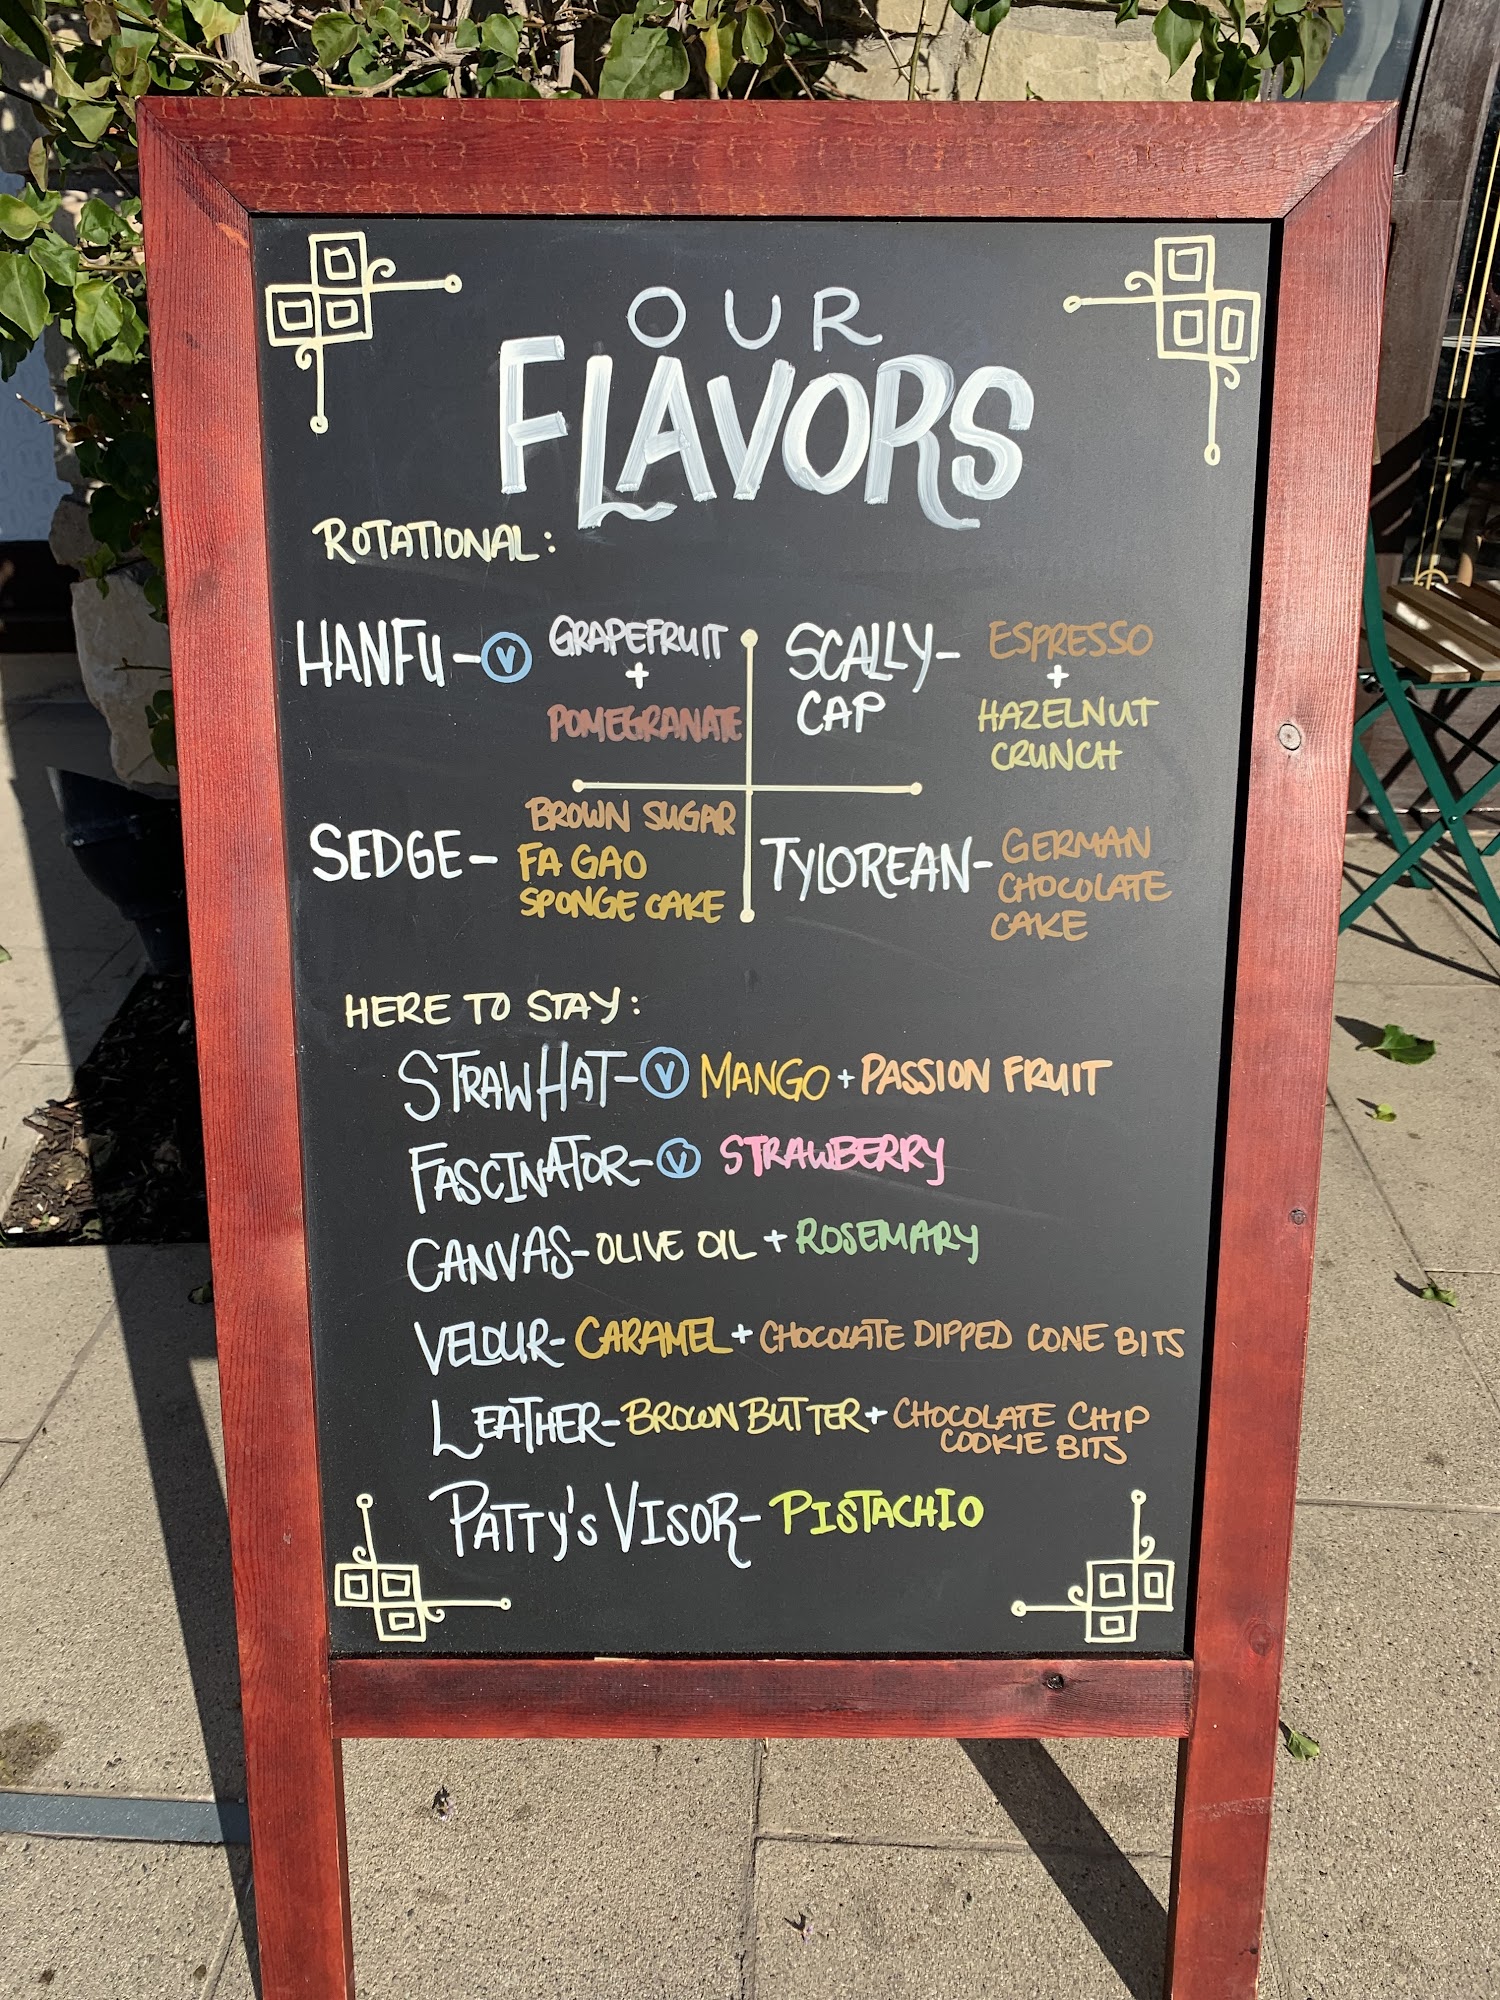 OUR
FLAVORS
ROTATIONAL:
HANFU - V GRAPEFRUIT
+
POMEGRANATE
SCALLY - ESPRESSO
CAP +
HAZELNUT
CRUNCH
SEDGE - BROWN SUGAR
FA GAO
SPONGE CAKE
TYLOREAN - GERMAN
CHOCOLATE
CAKE
HERE TO STAY:
STRAW HAT - V MANGO + PASSION FRUIT
FASCINATOR - V STRAWBERRY
CANVAS - OLIVE OIL + ROSEMARY
VELOUR - CARAMEL + CHOCOLATE DIPPED CONE BITS
LEATHER - BROWN BUTTER + CHOCOLATE CHIP
COOKIE BITS
PATTY'S VISOR - PISTACHIO